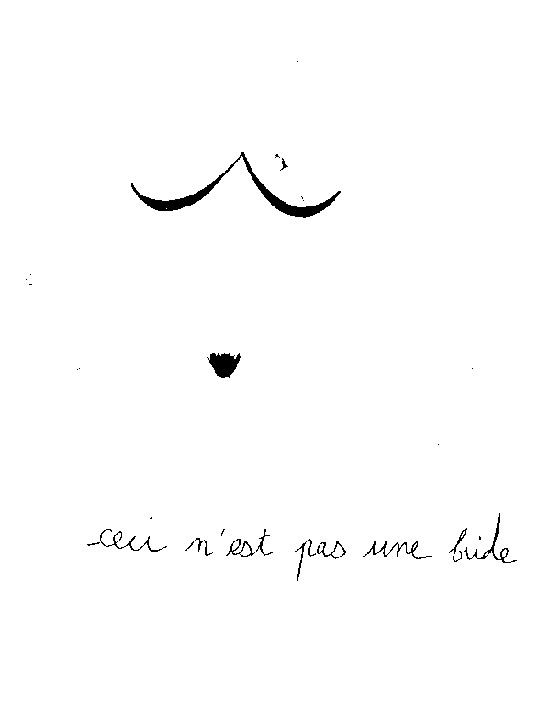 ceci n'est pas une bride